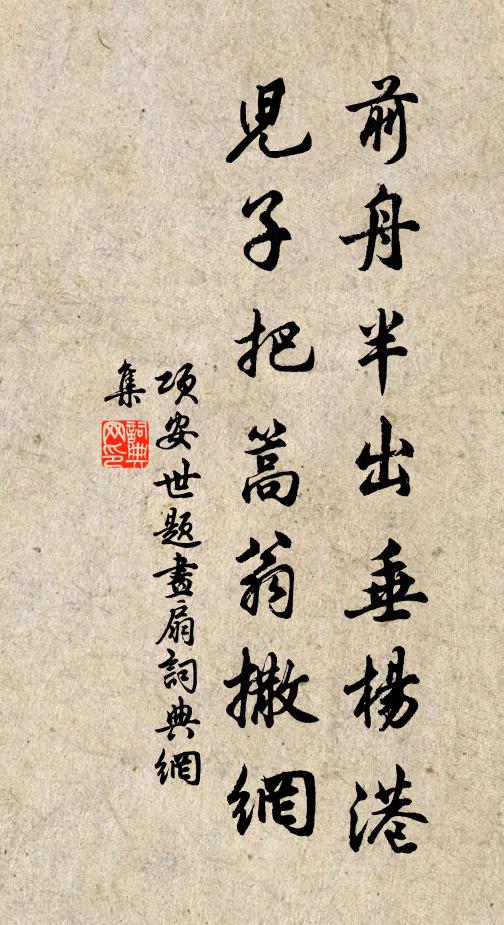 前舟半出垂楊港
兒子把篙翁撒網
項安世題畫扇詞典網
集
詞典
网印